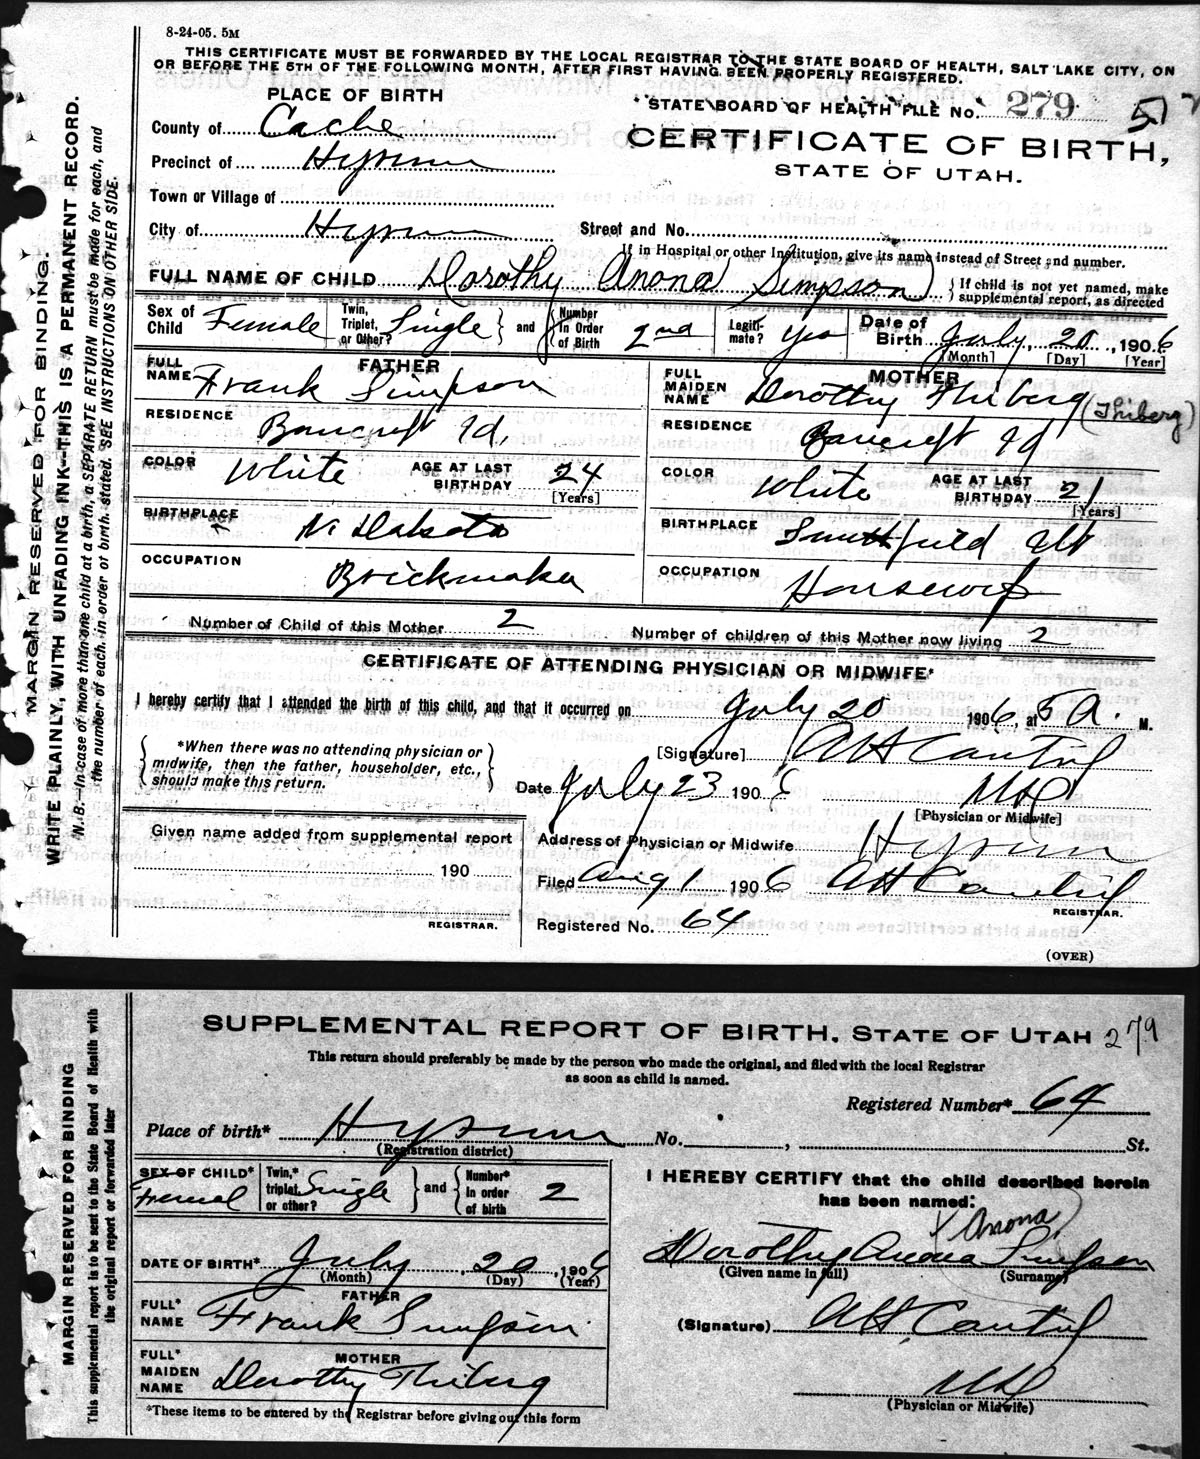 8-24-05. 5M
THIS CERTIFICATE MUST BE FORWARDED BY THE LOCAL REGISTRAR TO THE STATE BOARD OF HEALTH, SALT LAKE CITY, ON
OR BEFORE THE 5TH OF THE FOLLOWING MONTH, AFTER FIRST HAVING BEEN PROPERLY REGISTERED.
MARGIN RESERVED FOR BINDING.
WRITE PLAINLY, WITH UNFADING INK--THIS IS A PERMANENT RECORD.
N. B.—In case of more than one child at a birth, a SEPARATE RETURN must be made for each, and
the number of each, in order of birth, stated. SEE INSTRUCTIONS ON OTHER SIDE.
PLACE OF BIRTH
STATE BOARD OF HEALTH FILE No. 279 57
CERTIFICATE OF BIRTH,
STATE OF UTAH.
County of Cache
Precinct of Hyrum
Town or Village of
City of Hyrum Street and No.
If in Hospital or other Institution, give its name instead of Street and number.
FULL NAME OF CHILD Dorothy Anona Simpson } If child is not yet named, make
supplemental report, as directed
Sex of Child Female Twin, Triplet, or Other? Single } and { Number in Order of Birth 2nd Legiti-mate? Yes Date of Birth July, 20, 1906
[Month] [Day] [Year]
FATHER
FULL NAME Frank Simpson
RESIDENCE Bancroft Id.
COLOR White AGE AT LAST BIRTHDAY 24
[Years]
BIRTHPLACE N. Dakota
OCCUPATION Brickmaker
MOTHER
FULL MAIDEN NAME Dorothy Thiberg (Thiberg)
RESIDENCE Bancroft Id
COLOR White AGE AT LAST BIRTHDAY 21
[Years]
BIRTHPLACE Smithfield Ut
OCCUPATION Housewife
Number of Child of this Mother 2 Number of children of this Mother now living 2
CERTIFICATE OF ATTENDING PHYSICIAN OR MIDWIFE*
I hereby certify that I attended the birth of this child, and that it occurred on July 20 1906, at 5 A. M.
{ *When there was no attending physician or
midwife, then the father, householder, etc.,
should make this return. }
[Signature] AH Cantril
Date July 23 1906 MD
[Physician or Midwife]
Given name added from supplemental report
190
REGISTRAR.
Address of Physician or Midwife Hyrum
Filed Aug 1 1906 AH Cantril
REGISTRAR.
Registered No. 64
(OVER)
MARGIN RESERVED FOR BINDING
This supplemental report is to be sent to the State Board of Health with
the original report or forwarded later
SUPPLEMENTAL REPORT OF BIRTH. STATE OF UTAH 279
This return should preferably be made by the person who made the original, and filed with the local Registrar
as soon as child is named.
Registered Number* 64
Place of birth* Hyrum No. , St.
(Registration district)
SEX OF CHILD* Femal Twin,* triplet, or other? Single } and { Number* in order of birth 2
DATE OF BIRTH* July 20, 1906
(Month) (Day) (Year)
FATHER
FULL* NAME Frank Simpson
MOTHER
FULL* MAIDEN NAME Dorothy Thiberg
*These items to be entered by the Registrar before giving out this form
I HEREBY CERTIFY that the child described herein
has been named:
x Anona
Dorothy Anona Simpson
(Given name in full) (Surname)
(Signature) AH Cantril
MD
(Physician or Midwife)